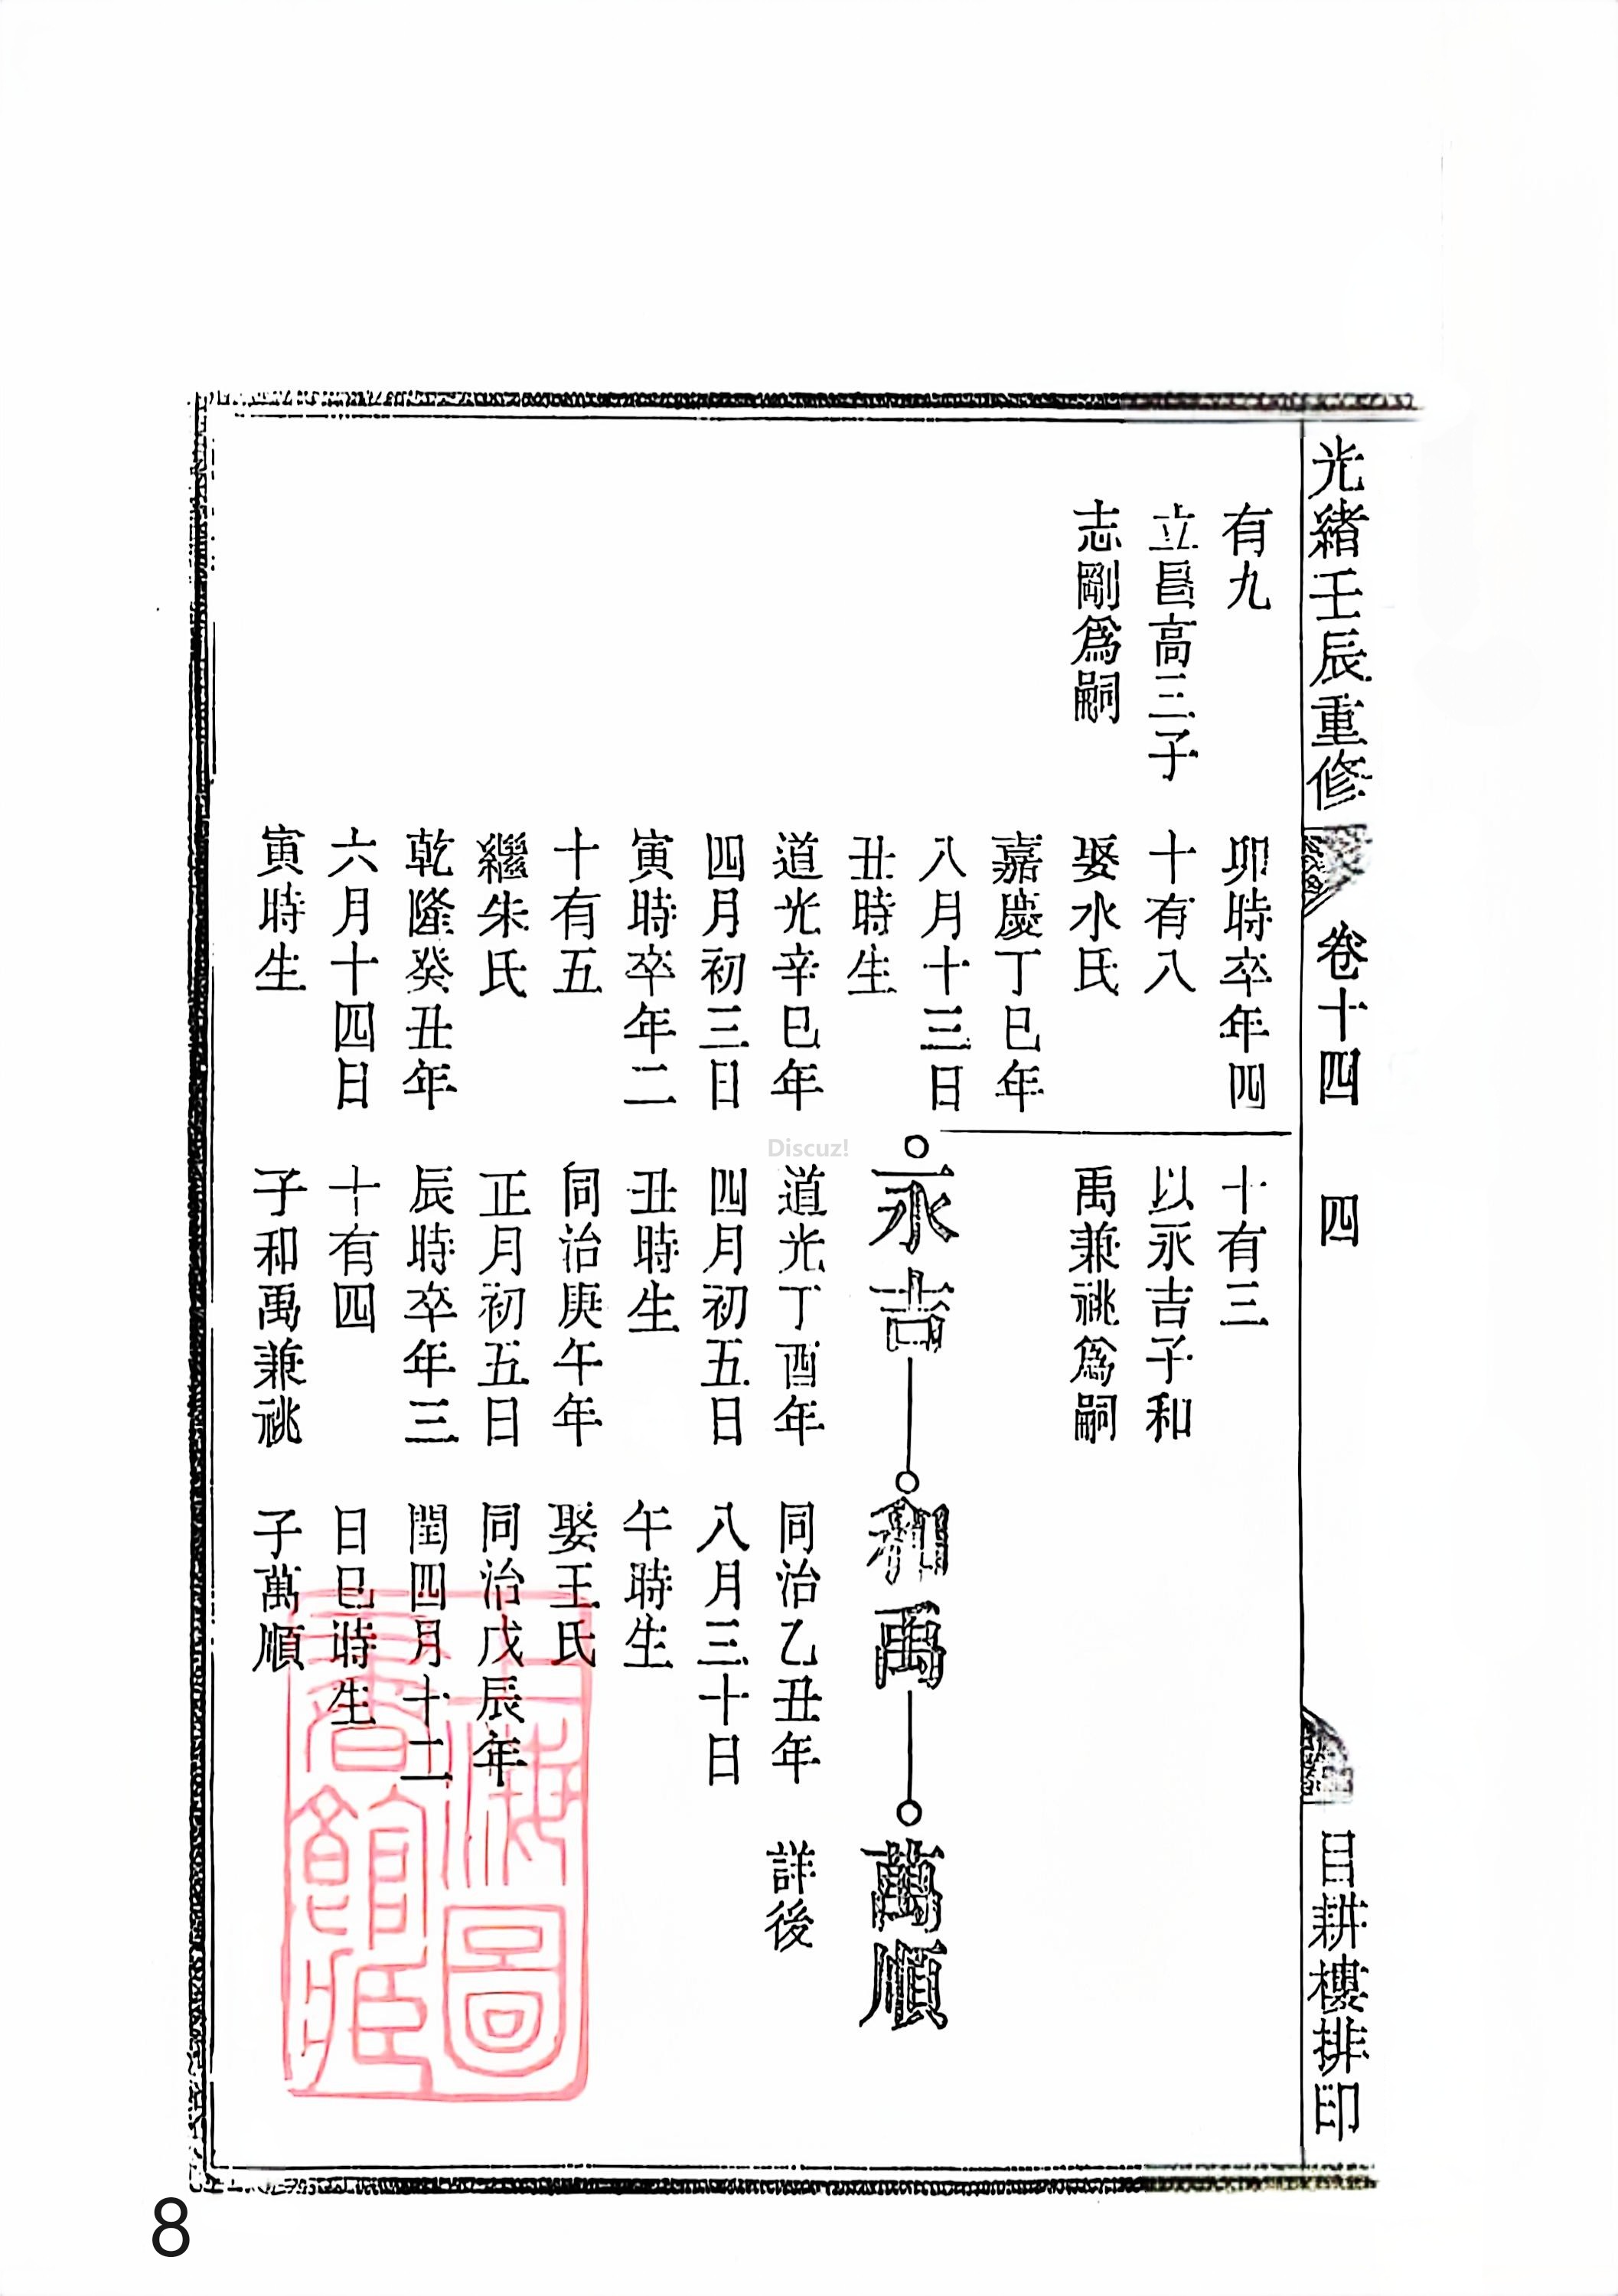 光緒壬辰重修
卷十四
四
目耕樓排印
有九
立昌高三子
志剛爲嗣
卯時卒年四
十有八
娶水氏
嘉慶丁巳年
八月十三日
丑時生
道光辛巳年
四月初三日
寅時卒年二
十有五
繼朱氏
乾隆癸丑年
六月十四日
寅時生
十有三
以永吉子和
禹兼祧爲嗣
永吉
道光丁酉年
四月初五日
丑時生
同治庚午年
正月初五日
辰時卒年三
十有四
子和禹兼祧
和禹
同治乙丑年
八月三十日
午時生
娶王氏
同治戊辰年
閏四月十二
日巳時生
子萬順
萬順
詳後
Discuz!
8